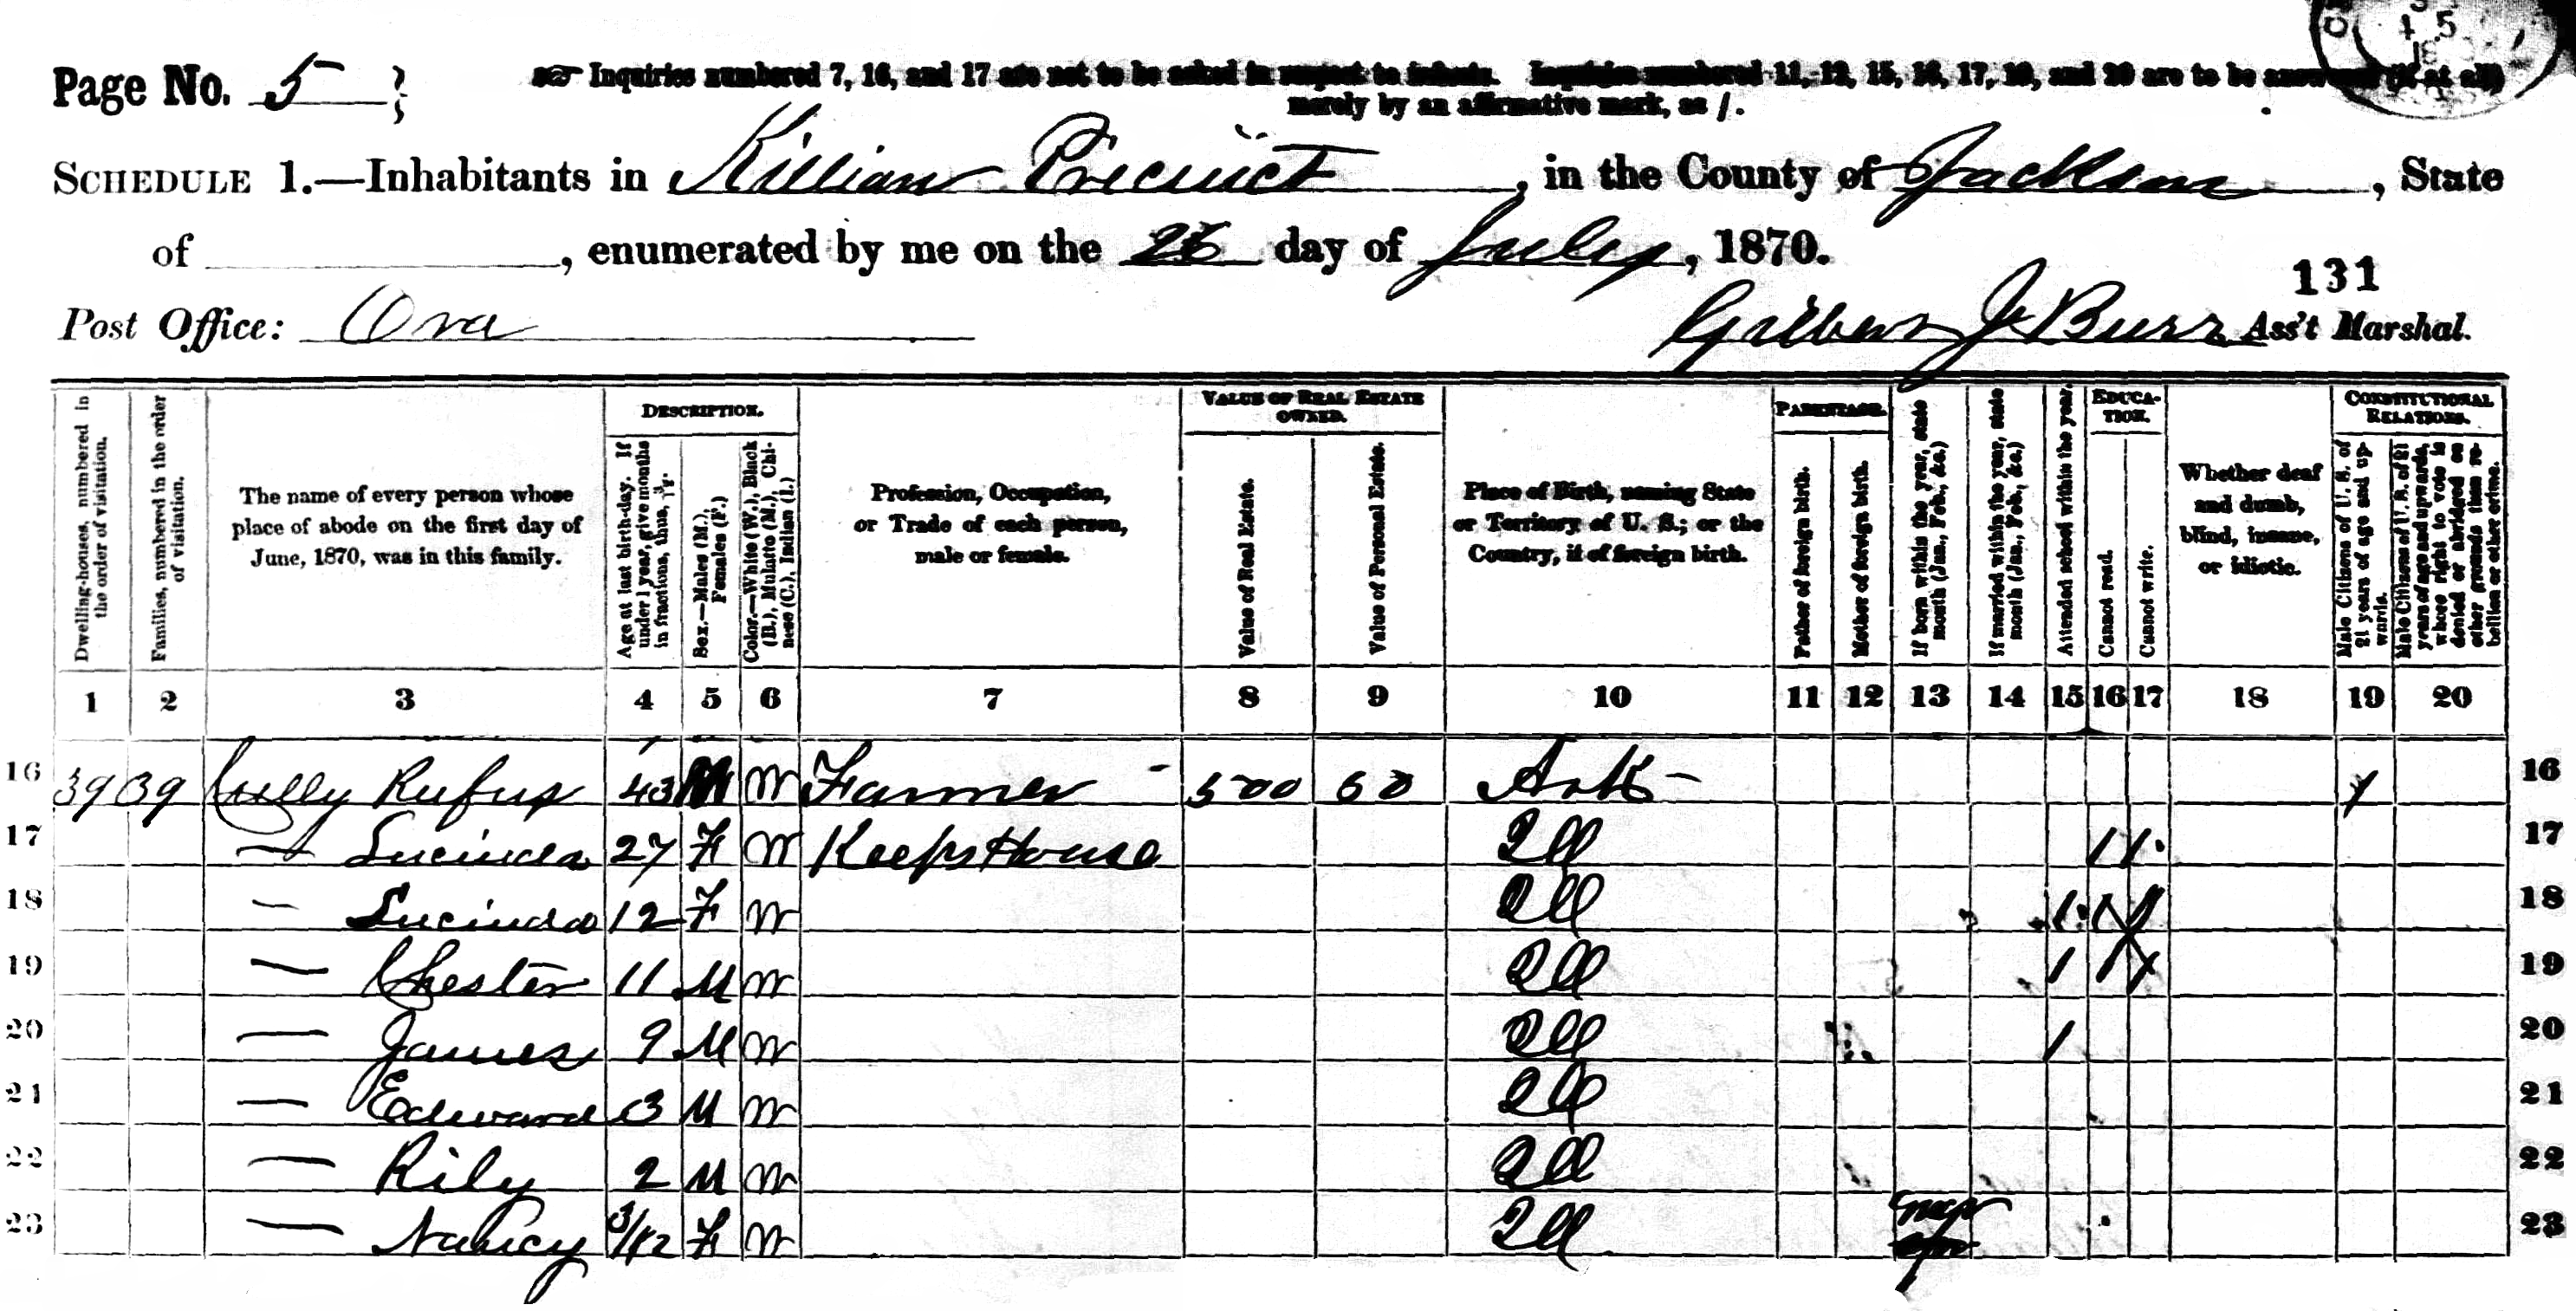 Page No. 5
Inquiries numbered 7, 16, and 17 are not to be asked in respect to infants. Inquiries numbered 11, 12, 15, 16, 17, 19, and 20 are to be answered (if at all)
merely by an affirmative mark, as /.
SCHEDULE 1.—Inhabitants in Killian Precinct, in the County of Jackson, State
of , enumerated by me on the 26 day of July, 1870.
131
Post Office: Ora Gilbert J Burr Ass't Marshal.
Dwelling-houses, numbered in the order of visitation.
Families, numbered in the order of visitation.
The name of every person whose place of abode on the first day of June, 1870, was in this family.
DESCRIPTION.
Age at last birth-day. If under 1 year, give months in fractions, thus, 3/12.
Sex.—Males (M.), Females (F.)
Color.—White (W.), Black (B.), Mulatto (M.), Chinese (C.), Indian (I.)
Profession, Occupation, or Trade of each person, male or female.
VALUE OF REAL ESTATE OWNED.
Value of Real Estate.
Value of Personal Estate.
Place of Birth, naming State or Territory of U. S.; or the Country, if of foreign birth.
PARENTAGE.
Father of foreign birth.
Mother of foreign birth.
If born within the year, state month (Jan., Feb., &c.)
If married within the year, state month (Jan., Feb., &c.)
Attended school within the year.
EDUCATION.
Cannot read.
Cannot write.
Whether deaf and dumb, blind, insane, or idiotic.
CONSTITUTIONAL RELATIONS.
Male Citizens of U. S. of 21 years of age and upwards.
Male Citizens of U. S. of 21 years of age and upwards, whose right to vote is denied or abridged on other grounds than rebellion or other crime.
1 2 3 4 5 6 7 8 9 10 11 12 13 14 15 16 17 18 19 20
16 39 39 Cully Rufus 43 M W Farmer 500 60 Ark 1 16
17 — Lucinda 27 F W Keeps House Ill 1 1 17
18 — Lucinda 12 F W Ill 1 18
19 — Chester 11 M W Ill 1 19
20 — James 9 M W Ill 1 20
21 — Edward 3 M W Ill 21
22 — Rily 2 M W Ill 22
23 — Nancy 3/12 F W Ill 23